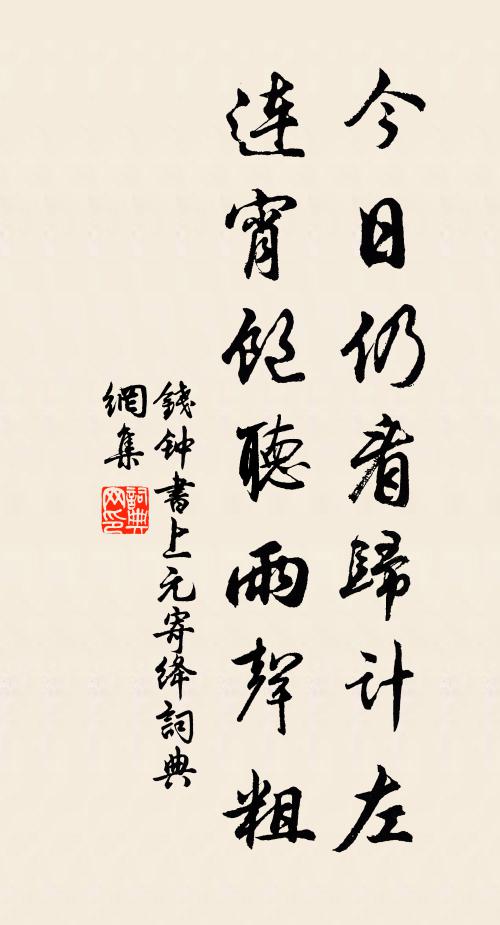 今日仍看歸計左
連宵飽聽雨聲粗
錢钟書上元寄绛詞典
網集
詞典
网印